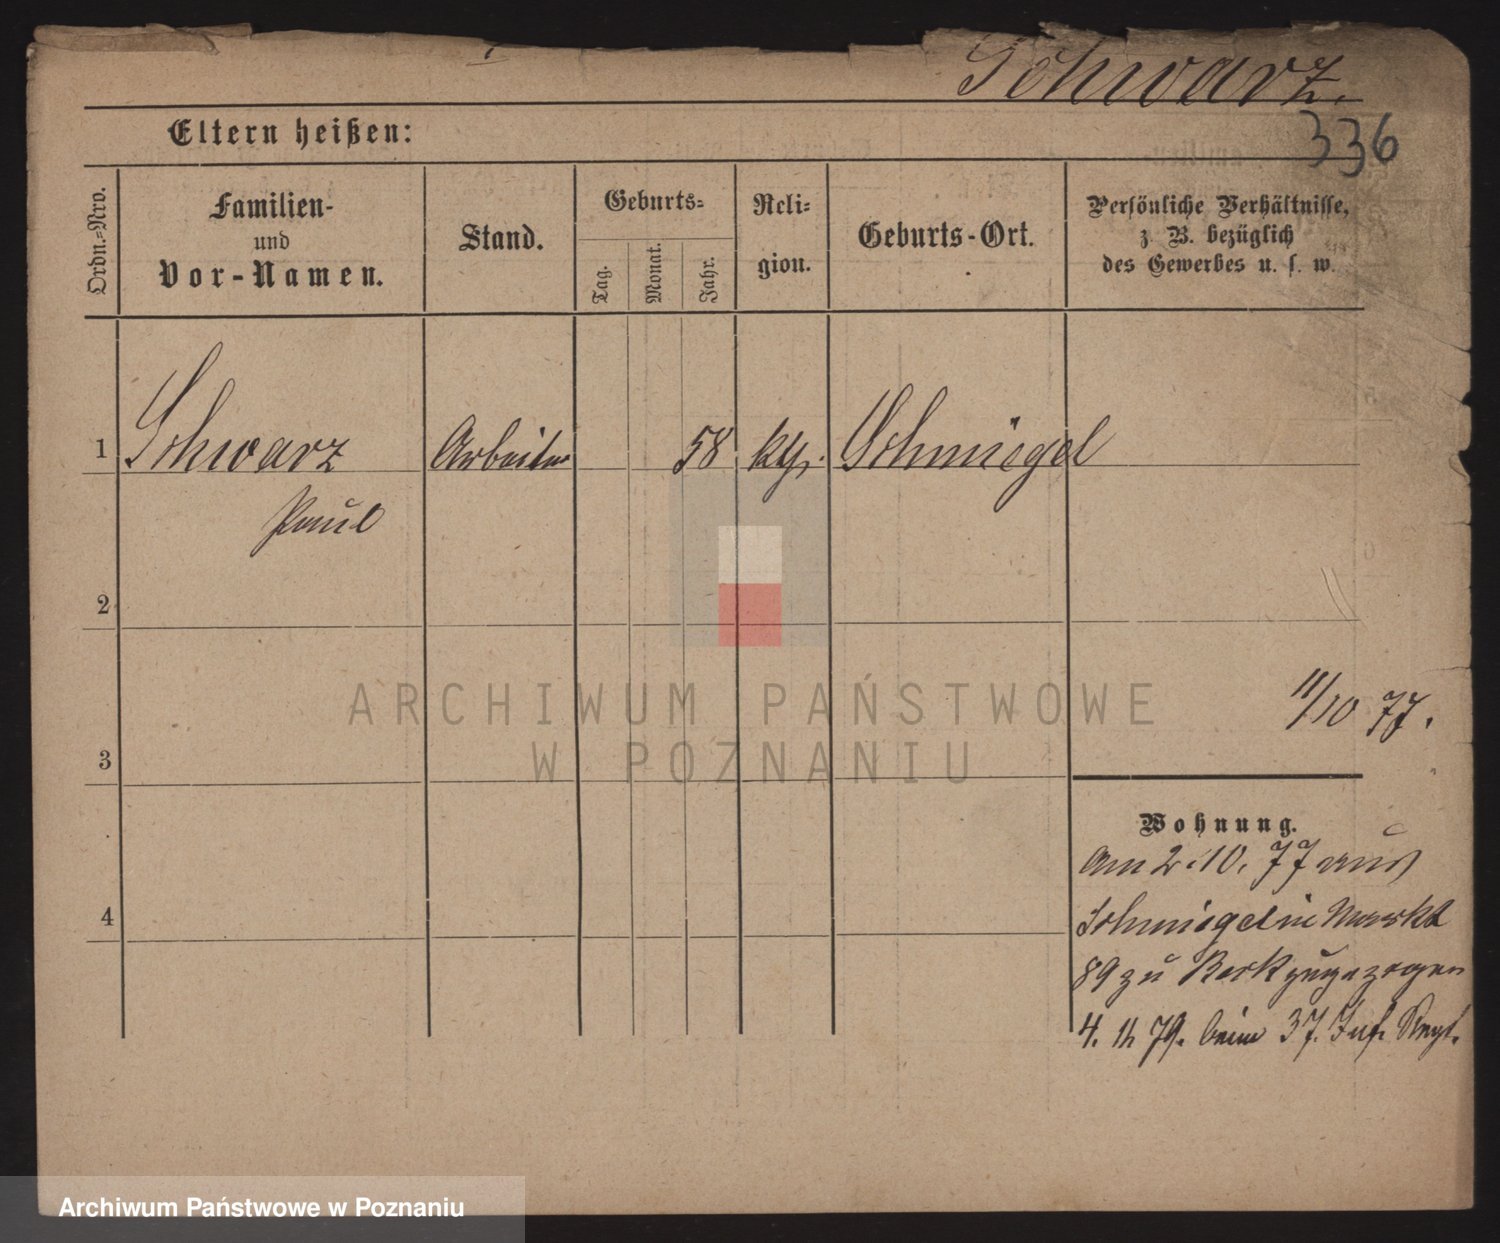 Schwarz.
336
Eltern heißen:
Ordn.-Nro.
Familien-
und
Vor-Namen.
Stand.
Geburts-
Tag.
Monat.
Jahr.
Reli-
gion.
Geburts-Ort.
Persönliche Verhältnisse,
z. B. bezüglich
des Gewerbes u. s. w.
1 Schwarz Arbeiter 58 kth. Schmiegel
Paul
2
3
4
11/10 77.
Wohnung.
am 2.10.77 aus
Schmiegel in Markt
89 zu zugezogen
4. 11 79. beim 37. Inf. Regt.
ARCHIWUM PAŃSTWOWE
W POZNANIU
Archiwum Państwowe w Poznaniu